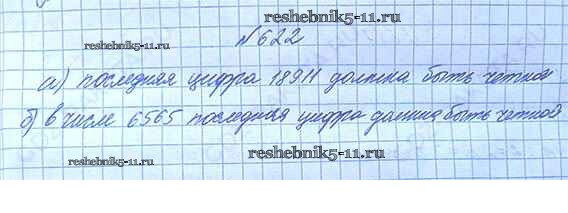 reshebnik5-11.ru
№622
reshebnik5-11.ru
а) последняя цифра 18911 должна быть четной
б) в числе 6565 последняя цифра должна быть четной
reshebnik5-11.ru